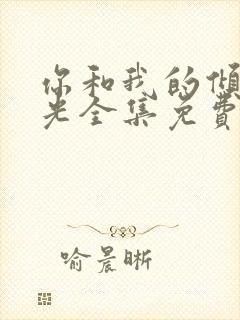 你和我的倾
光全集免费
喻晨晰